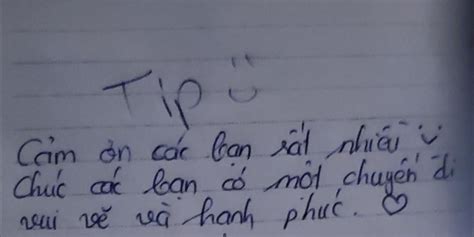 Tip
Cảm ơn các bạn rất nhiều
Chúc các bạn có một chuyến đi
vui vẻ và hạnh phúc.